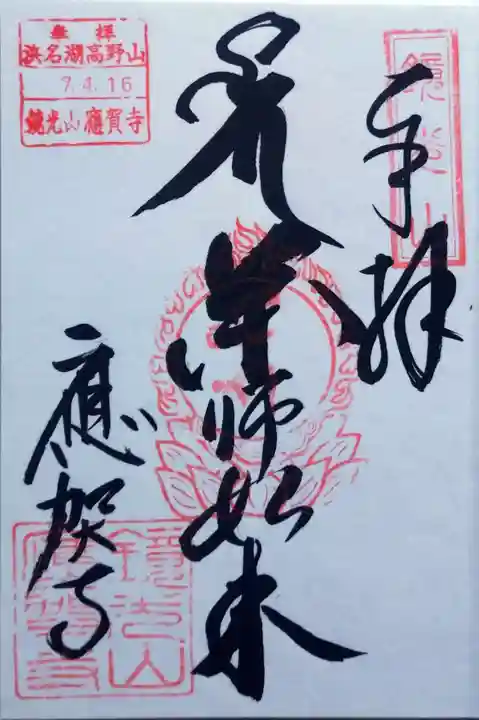 奉拝
鏡光山
薬師如来
應賀寺
拝
浜名湖高野山
7.4.16
鏡光山應賀寺
鏡光山
應賀寺